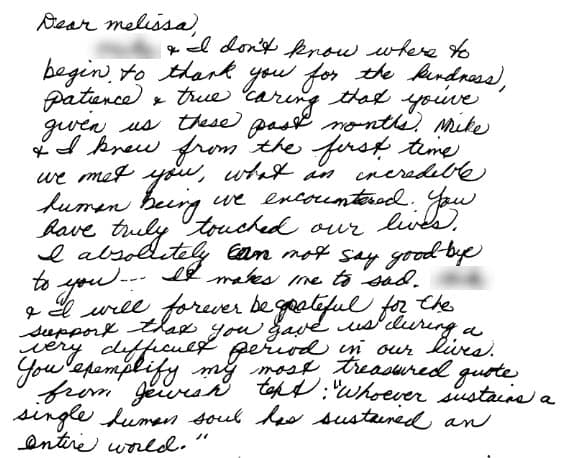 Dear melissa,
& I don't know where to
begin to thank you for the kindness,
patience & true caring that you've
given us these past months. Mike
& I knew from the first time
we met you, what an incredible
human being we encountered. You
have truly touched our lives.
I absolutely can not say good-bye
to you --- It makes me to sad.
& I will forever be grateful for the
support that you gave us during a
very difficult period in our lives.
You exemplify my most treasured quote
from Jewish text: "Whoever sustains a
single human soul has sustained an
entire world."